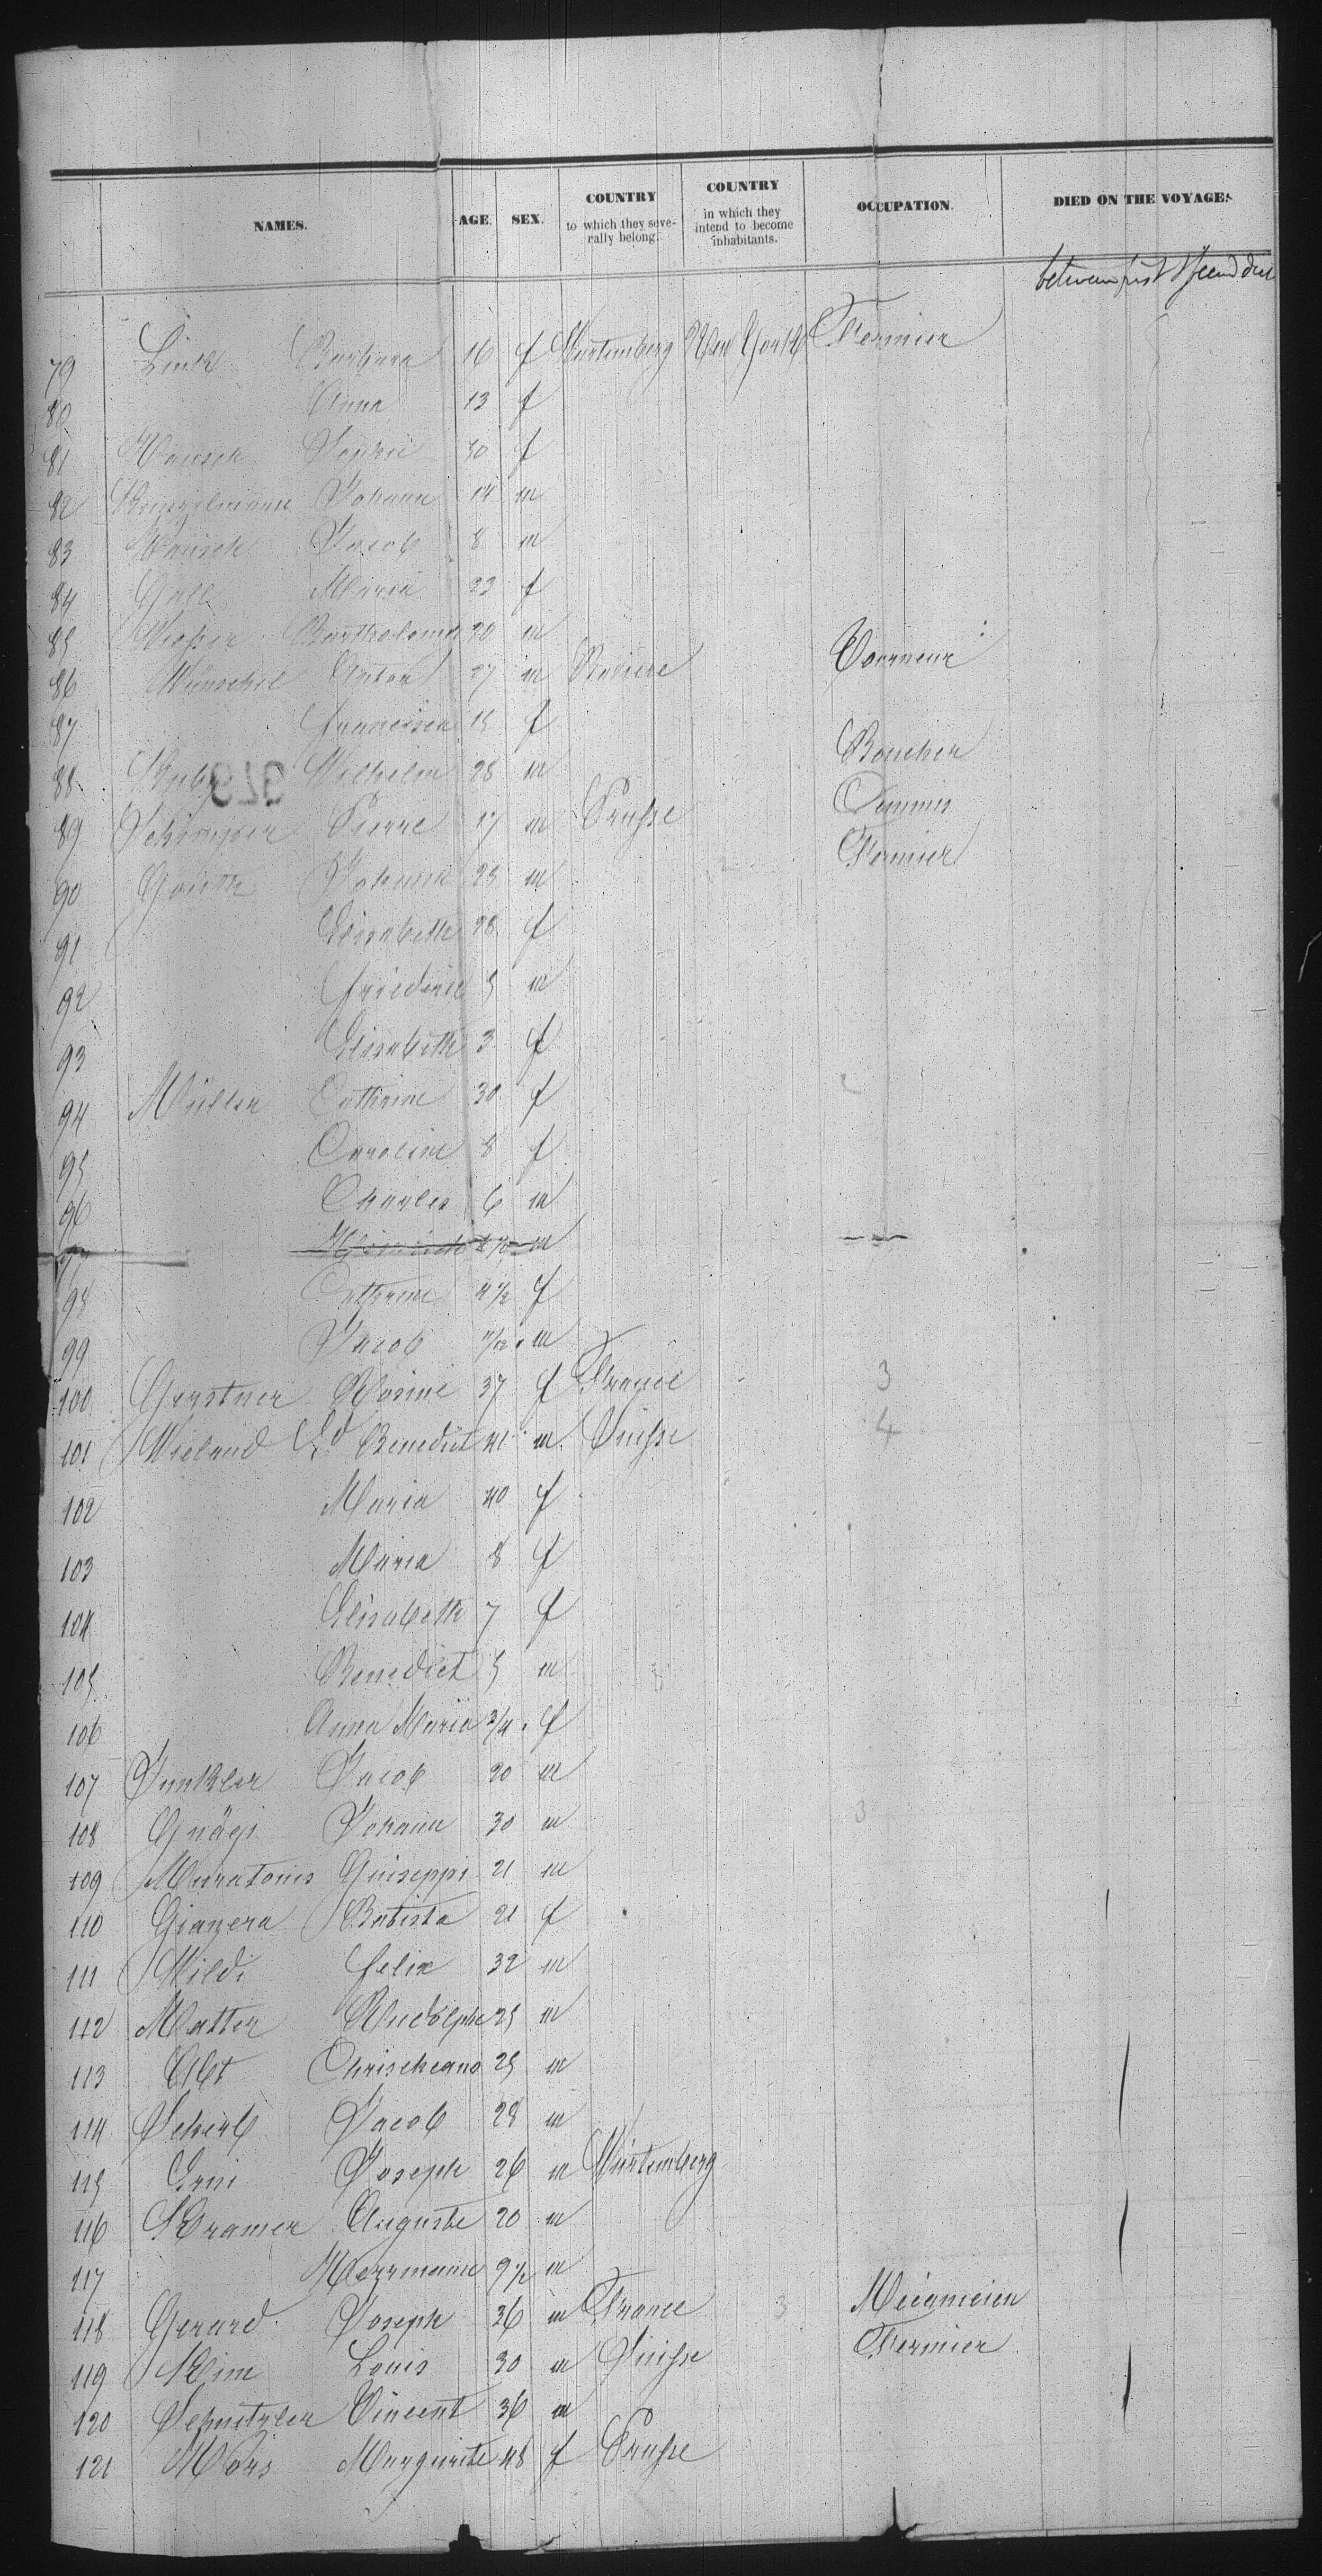 NAMES. AGE. SEX. COUNTRY to which they severally belong. COUNTRY in which they intend to become inhabitants. OCCUPATION. DIED ON THE VOYAGE.
between first & second deck
79 Link Barbara 16 f Wurtemberg New York Fermier
80 Anna 13 f
81 Sophie 30 f
82 Johann 14 m
83 Jacob 8 m
84 Gall Maria 23 f
85 Bartholomä 20 m
86 Anton 27 m Baviere Tourneur
87 Francisca 15 f
88 Wilhelm 28 m Boucher
89 Schimper Pierre 17 m Prusse Commis
90 Johann 29 m Fermier
91 Elisabeth 28 f
92 Friedrich 5 m
93 Elisabeth 3 f
94 Müller Cathrine 30 f
95 Caroline 8 f
96 Charles 6 m
97 m
98 Cathrine 4 1/2 f
99 Jacob 11/12 m
100 Gerstner Rosine 37 f France 3
101 Wieland Benedict 41 m Suisse 4
102 Maria 40 f
103 Maria 8 f
104 Elisabeth 7 f
105 Benedict 5 m
106 Anna Maria 3/4 f
107 Junkler Jacob 20 m
108 Gnägi Johann 30 m
109 Muratonis Guiseppi 21 m
110 Gianzera Batista 21 f
111 Wildi Felix 32 m
112 Matter Rudolphe 25 m
113 Abt Christiano 25 m
114 Scherb Jacob 28 m
115 Erni Joseph 26 m Würtemberg
116 Kramer Auguste 20 m
117 Herrmann 9 1/2 m
118 Gerard Joseph 36 m France 3 Mécanicien
119 Louis 30 m Suisse Fermier
120 Schnetzler Vincent 36 m
121 Mors Margurite 48 f Prusse